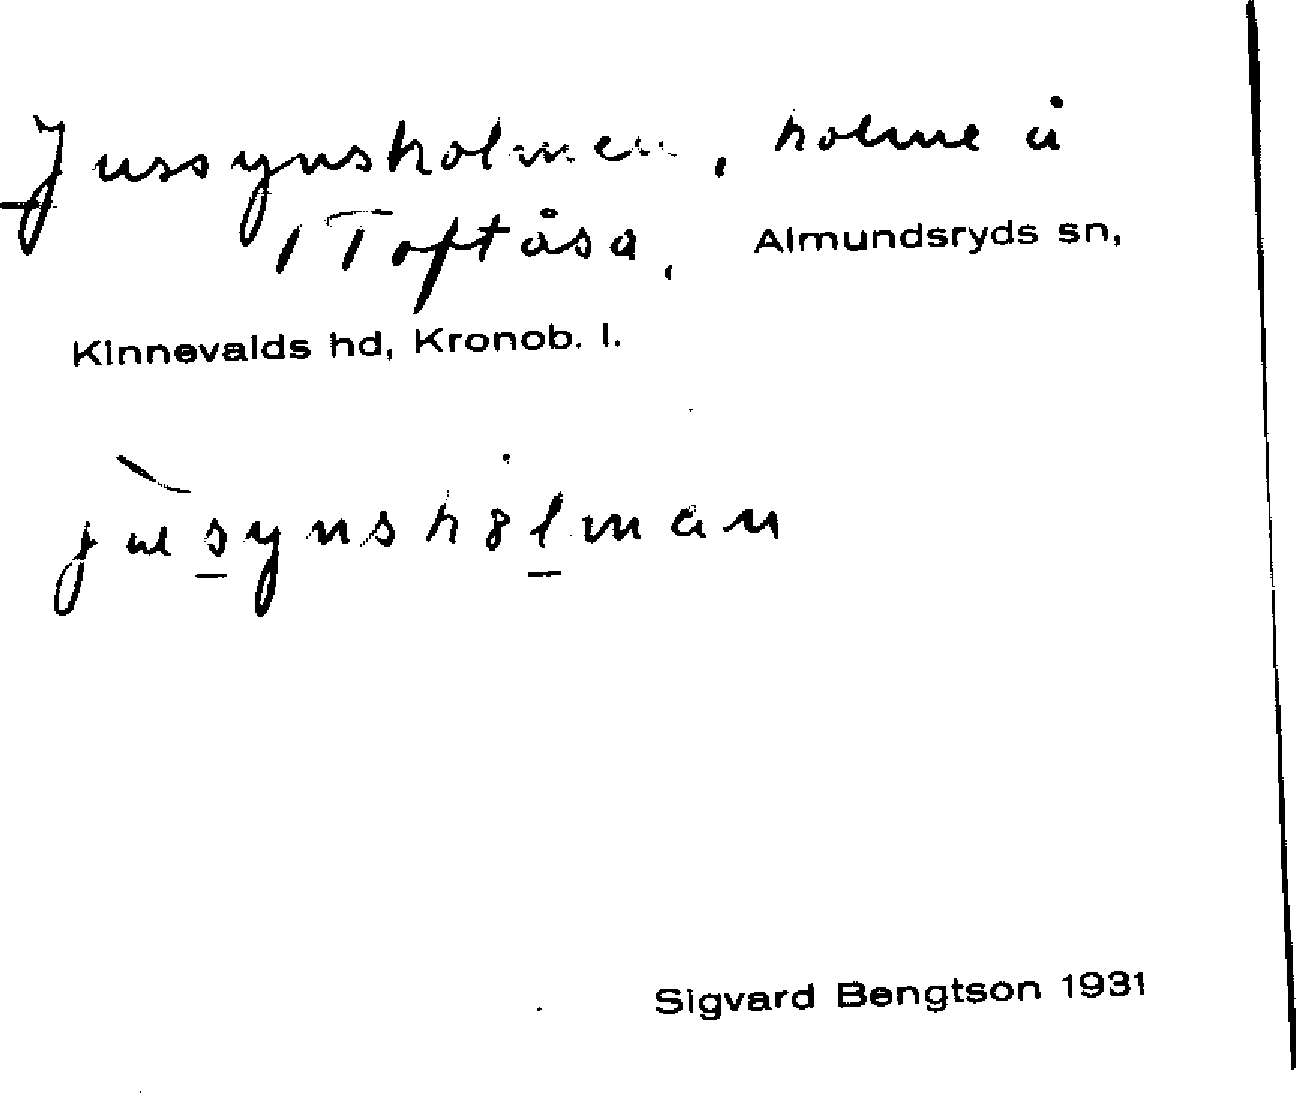 Jussynsholmen, holme å
i Toftåsa, Almundsryds sn,
Kinnevalds hd, Kronob. l.
Sigvard Bengtson 1931